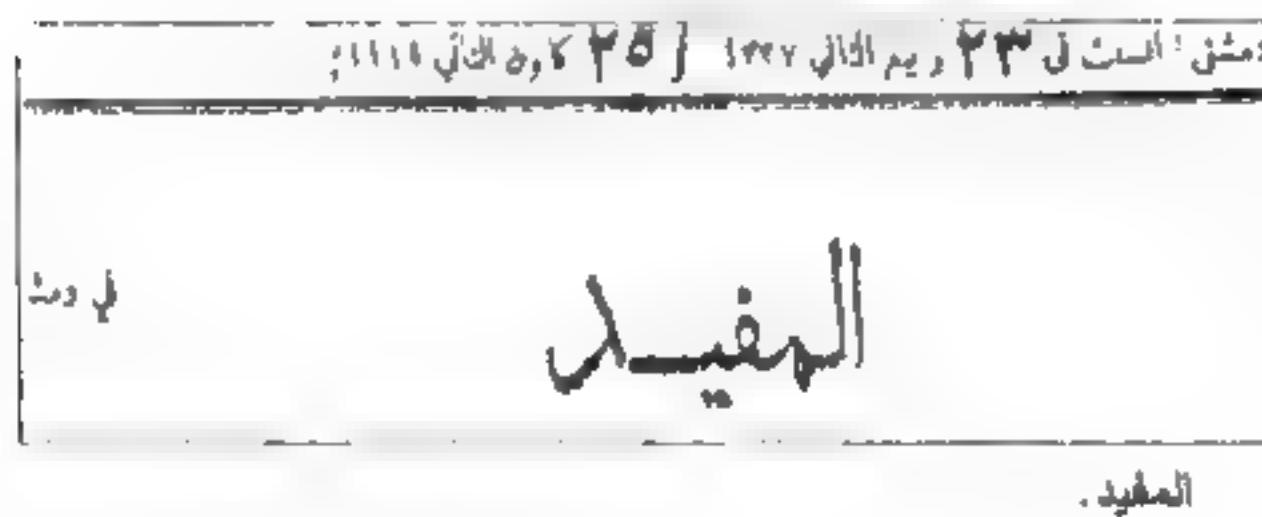 دمشق : السبت في ٢٣ ربيع الثاني ١٣٣٧ ٢٥ كانون الثاني ١٩١٩
المفيد
في
المفيد .